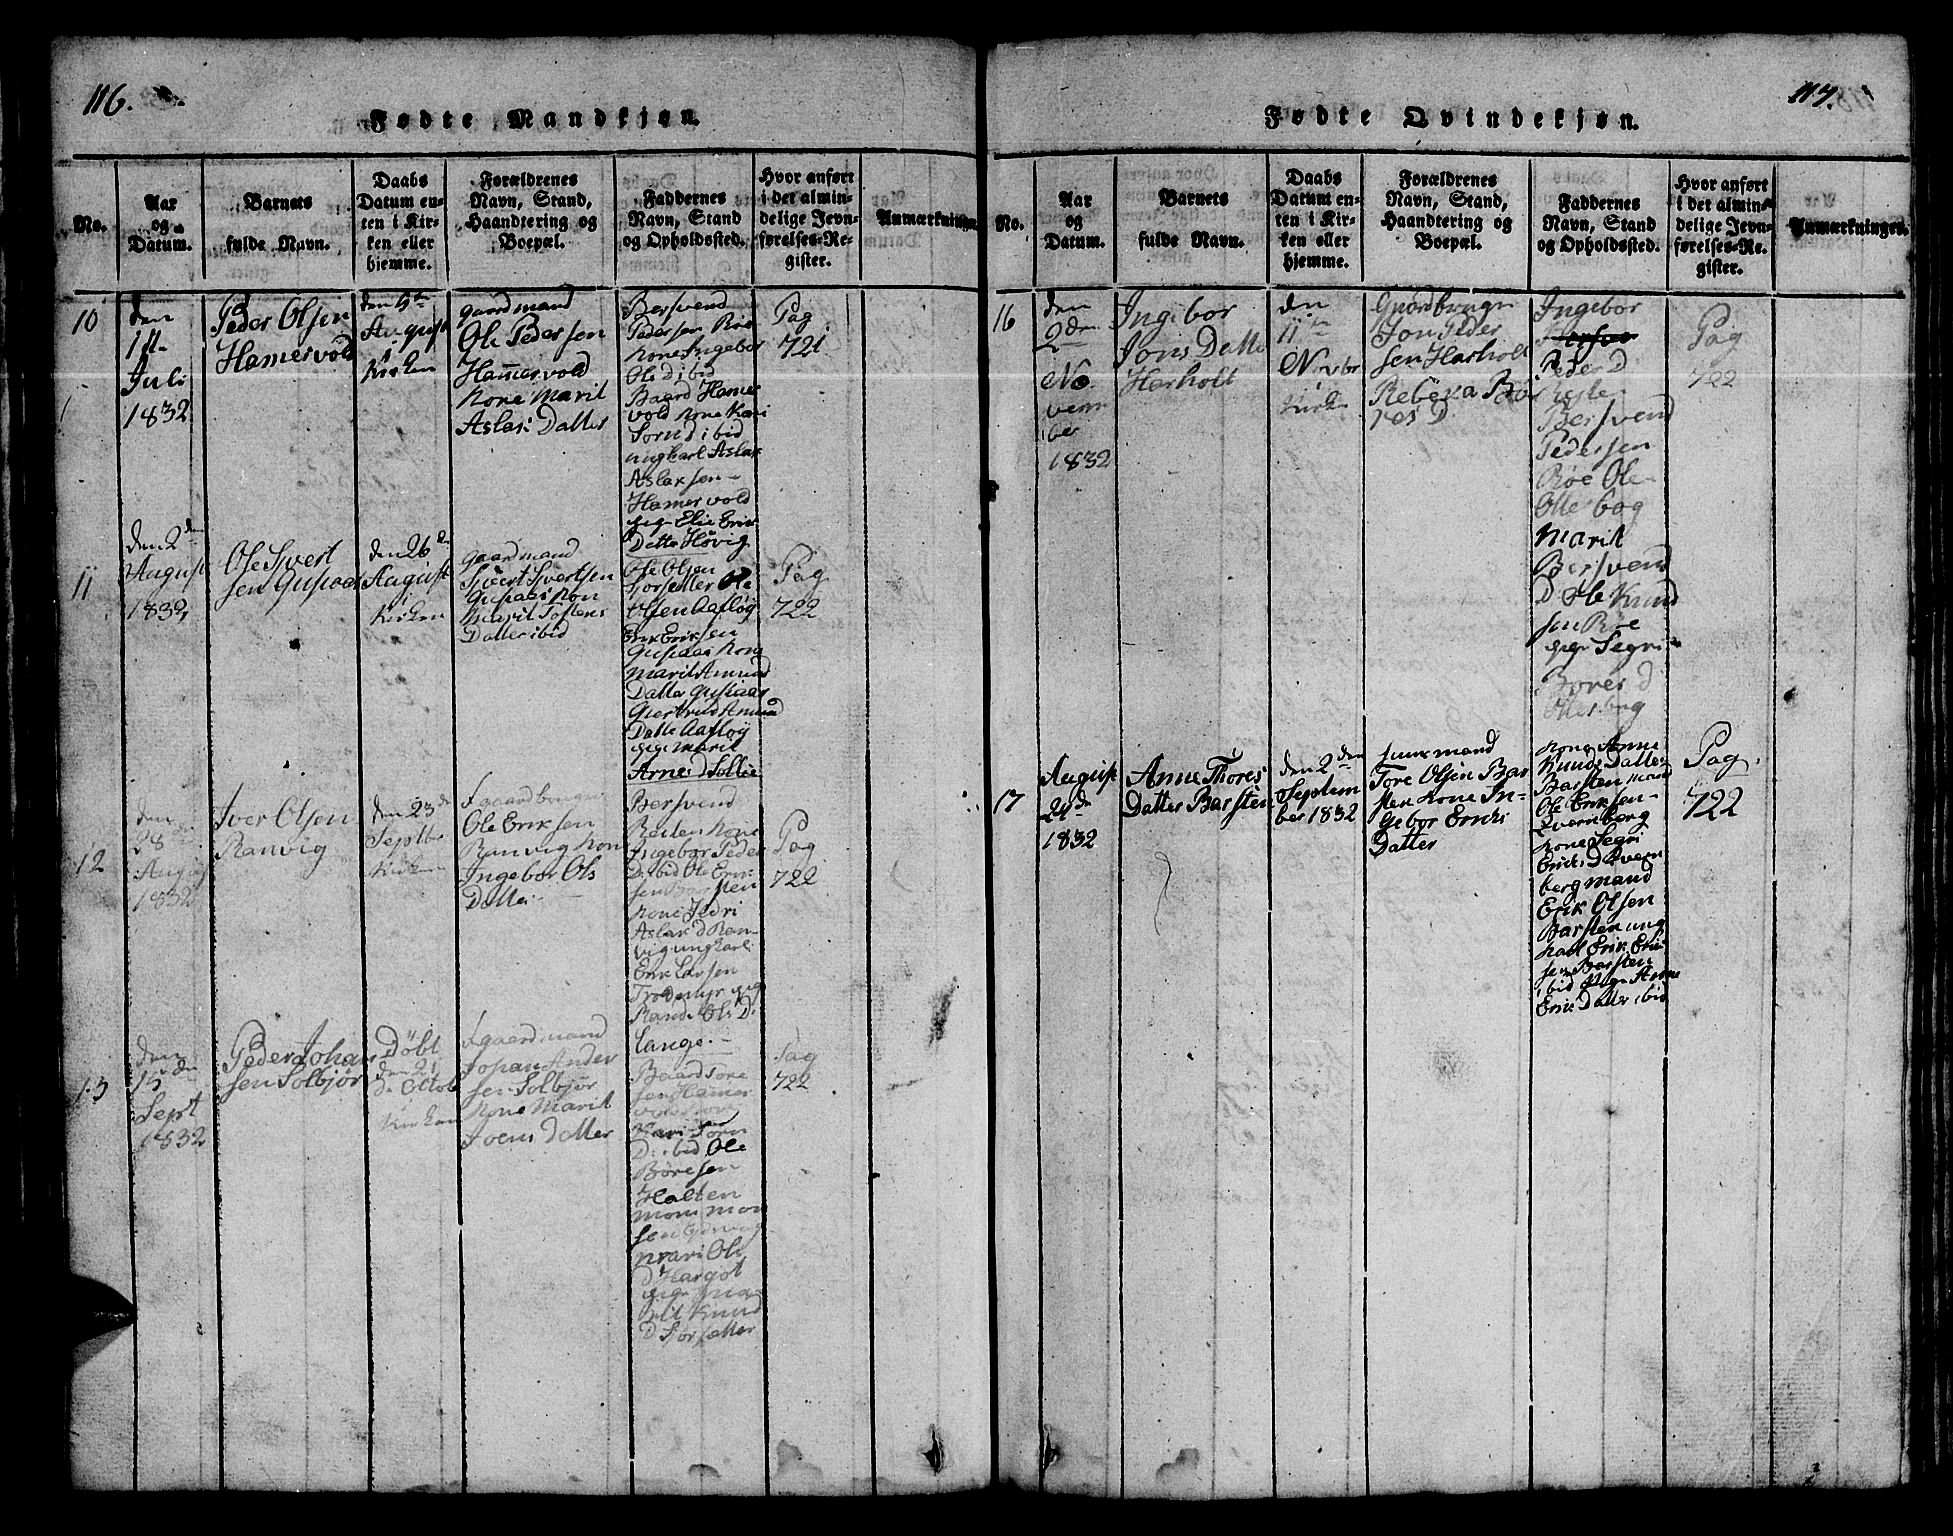 116.
Fødte Mandkjøn.
No.
Aar
og
Datum.
Barnets
fulde Navn.
Daabs
Datum en-
ten i Kir-
ken eller
hjemme.
Forældrenes
Navn, Stand,
Haandtering og
Boepæl.
Faddernes
Navn, Stand
og Opholdssted.
Hvor anført
i det almin-
delige Jevn-
førelses-Re-
gister.
Anmærkninger.
10
den
1ll
Juli
1832
Peder Olsen
Hamervold
den 5te
August
Kirken
gaardmand
Ole Pedersen
Hamervold
Kone Marit
Aslas Datter
Bersvend
Pedersen Röe
Kone Ingebor
Ole D ibid
Baard Hamer
vold Kone Kari
Sorn D ibid
ungkarl Aslak
Aslaksen
Hamervold
pige Elie Erik
Datter Høvig
Pag
721
11
den 2den
August
1832
Ole Sjvert
sen Gusiaas
den 26de
August
i
Kirken
gaardmand
Sjvert Sjvertsen
Gusiaas Kon
Marit Tostens
Datter ibid
Ole Olsen
Sjorsetter Ole
Olsen Aafløy
Erik Eriksen
Gusiaas Kone
Marit Amund
Datter Gusiaas
Giertrud Amund
Datter Aafløy
pige Marit
Arnes D Sollie
Pag
722
12
den
28de
August
1832
Iver Olsen
Ranvig
den 23de
Septbr
Kirken
Fgaardbruger
Ole Eriksen
Ranvig Kon
Ingebor Ols
Datter
Bersvend
Kone
Ingebor Peder
D ibid Ole Erik
sen Barsten
Kone Sedri
Aslak D Ran
vig ungkarl
Erik Larsen
Trodemyr pige
Rand Ols D
Lange
Pag
722
13
den
15de
Sept
1832
Peder Johan
sen Solbjør
Döbt
den 21
de Octob
Kirken
Fgaardmand
Johan Ander
sen Solbjør
Kone Marit
Joens Datter
Baard Tore
sen Hamer
vold Kone
Kari Sorn
D ibid Ole
Böresen
Halten
Mons Mon
sen
Mari Ols
D Hargot
pige Ma
rit Knud
D Sjorsetter
Pag
722
117.
Fødte Qvindekjøn.
No.
Aar
og
Datum.
Barnets
fulde Navn.
Daabs
Datum en-
ten i Kir-
ken eller
hjemme.
Forældrenes
Navn, Stand,
Haandtering og
Boepæl.
Faddernes
Navn, Stand
og Opholdssted.
Hvor anført
i det almin-
delige Jevn-
førelses-Re-
gister.
Anmærkninger.
16
den
2den
No
vem
ber
1832
Ingebor
Jons Datter
Harholt
den
11te
Novbr
Kirke
Gaardbruger
Jon Peder
sen Harholt
Rebeka Bör
res D
Ingebor
Peder D
Bersvend
Pedersen
Röe Ole
Otterbog
Marit
Bersvend
D Ole Knud
sen Röe
pige Segri
Böres D
Otterbog
Pag
722
17
August
29de
1832
Anne Thores
Datter Barsten
den 2den
Septem
ber 1832
huusmand
Tore Olsen Bar
sten Kone In-
gebor Eriks
Datter
Kone Anne
Knuds Datter
Barsten mand
Ole Eriksen
Qvernberg
Kone Segri
Eriks D Qvern
berg mand
Erik Olsen
Barsten ung
karl Erik Erik
sen Barsten
ibid pige Anne
Erik Datter ibid
Pag.
722